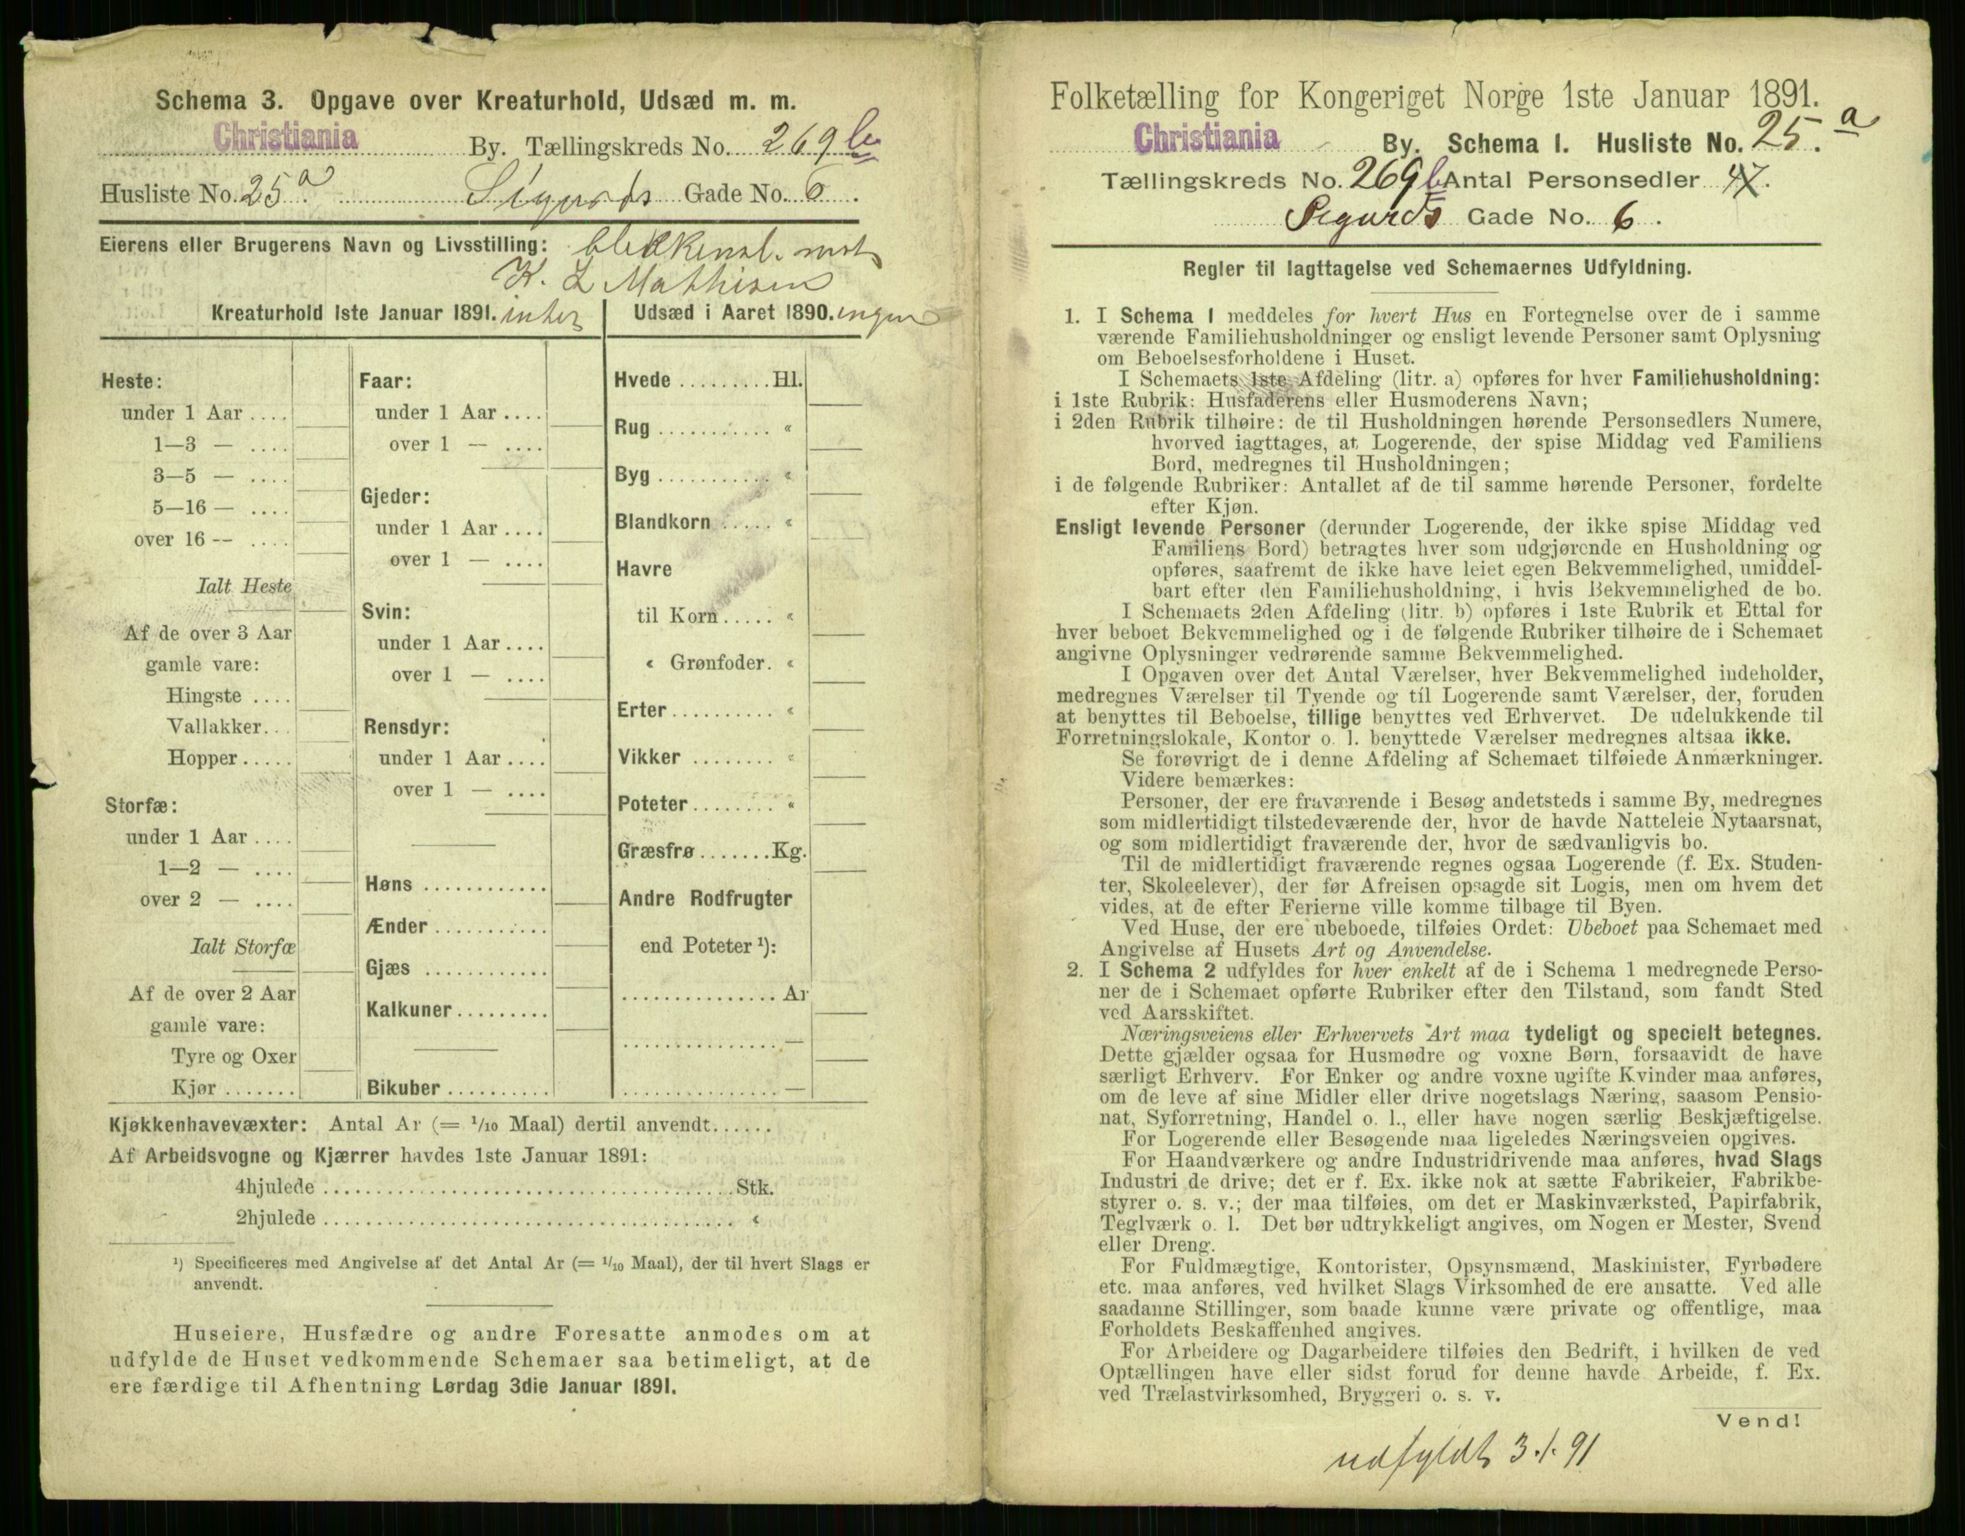 Schema 3. Opgave over Kreaturhold, Udsæd m. m.
Christiania By. Tællingskreds No. 269 b
Husliste No. 25 a Sigurds Gade No. 6.
Eierens eller Brugerens Navn og Livsstilling: blikkensl. mst
K. L Mathisen
Kreaturhold 1ste Januar 1891. intet
Udsæd i Aaret 1890. ingen
Heste:
under 1 Aar ....
1—3 — ....
3—5 — ....
5—16 — ....
over 16 -- ....
Ialt Heste
Af de over 3 Aar
gamle vare:
Hingste ....
Vallakker...
Hopper.....
Storfæ:
under 1 Aar ....
1—2 — ....
over 2 — ....
Ialt Storfæ
Af de over 2 Aar
gamle vare:
Tyre og Oxer
Kjør .......
Faar:
under 1 Aar ....
over 1 — ....
Gjeder:
under 1 Aar ....
over 1 — ....
Svin:
under 1 Aar ....
over 1 — ....
Rensdyr:
under 1 Aar ....
over 1 — ....
Høns ............
Ænder ...........
Gjæs ............
Kalkuner.........
Bikuber ..........
Hvede .........Hl.
Rug ........... «
Byg ........... «
Blandkorn ..... «
Havre
til Korn..... «
« Grønfoder. «
Erter.......... «
Vikker ........ «
Poteter........ «
Græsfrø .......Kg.
Andre Rodfrugter
end Poteter ¹):
...............Ar
...............—
...............—
Kjøkkenhavevæxter: Antal Ar (= 1/10 Maal) dertil anvendt......
Af Arbeidsvogne og Kjærrer havdes 1ste Januar 1891:
4hjulede ........................................Stk.
2hjulede ........................................ «
¹) Specificeres med Angivelse af det Antal Ar (= 1/10 Maal), der til hvert Slags er
anvendt.
Huseiere, Husfædre og andre Foresatte anmodes om at
udfylde de Huset vedkommende Schemaer saa betimeligt, at de
ere færdige til Afhentning Lørdag 3die Januar 1891.
Folketælling for Kongeriget Norge 1ste Januar 1891.
Christiania By. Schema I. Husliste No. 25 a.
Tællingskreds No. 269 b Antal Personsedler 47.
Sigurds Gade No. 6.
Regler til Iagttagelse ved Schemaernes Udfyldning.
1. I Schema 1 meddeles for hvert Hus en Fortegnelse over de i samme
værende Familiehusholdninger og ensligt levende Personer samt Oplysning
om Beboelsesforholdene i Huset.
I Schemaets 1ste Afdeling (litr. a) opføres for hver Familiehusholdning:
i 1ste Rubrik: Husfaderens eller Husmoderens Navn;
i 2den Rubrik tilhøire: de til Husholdningen hørende Personsedlers Numere,
hvorved iagttages, at Logerende, der spise Middag ved Familiens
Bord, medregnes til Husholdningen;
i de følgende Rubriker: Antallet af de til samme hørende Personer, fordelte
efter Kjøn.
Ensligt levende Personer (derunder Logerende, der ikke spise Middag ved
Familiens Bord) betragtes hver som udgjørende en Husholdning og
opføres, saafremt de ikke have leiet egen Bekvemmelighed, umiddel-
bart efter den Familiehusholdning, i hvis Bekvemmelighed de bo.
I Schemaets 2den Afdeling (litr. b) opføres i 1ste Rubrik et Ettal for
hver beboet Bekvemmelighed og i de følgende Rubriker tilhøire de i Schemaet
angivne Oplysninger vedrørende samme Bekvemmelighed.
I Opgaven over det Antal Værelser, hver Bekvemmelighed indeholder,
medregnes Værelser til Tyende og til Logerende samt Værelser, der, foruden
at benyttes til Beboelse, tillige benyttes ved Erhvervet. De udelukkende til
Forretningslokale, Kontor o. l. benyttede Værelser medregnes altsaa ikke.
Se forøvrigt de i denne Afdeling af Schemaet tilføiede Anmærkninger.
Videre bemærkes:
Personer, der ere fraværende i Besøg andetsteds i samme By, medregnes
som midlertidigt tilstedeværende der, hvor de havde Natteleie Nytaarsnat,
og som midlertidigt fraværende der, hvor de sædvanligvis bo.
Til de midlertidigt fraværende regnes ogsaa Logerende (f. Ex. Studen-
ter, Skoleelever), der før Afreisen opsagde sit Logis, men om hvem det
vides, at de efter Ferierne ville komme tilbage til Byen.
Ved Huse, der ere ubeboede, tilføies Ordet: Ubeboet paa Schemaet med
Angivelse af Husets Art og Anvendelse.
2. I Schema 2 udfyldes for hver enkelt af de i Schema 1 medregnede Perso-
ner de i Schemaet opførte Rubriker efter den Tilstand, som fandt Sted
ved Aarsskiftet.
Næringsveiens eller Erhvervets Art maa tydeligt og specielt betegnes.
Dette gjælder ogsaa for Husmødre og voxne Børn, forsaavidt de have
særligt Erhverv. For Enker og andre voxne ugifte Kvinder maa anføres,
om de leve af sine Midler eller drive nogetslags Næring, saasom Pensio-
nat, Syforretning, Handel o. l., eller have nogen særlig Beskjæftigelse.
For Logerende eller Besøgende maa ligeledes Næringsveien opgives.
For Haandværkere og andre Industridrivende maa anføres, hvad Slags
Industri de drive; det er f. Ex. ikke nok at sætte Fabrikeier, Fabrikbe-
styrer o. s. v.; der maa tilføies, om det er Maskinværksted, Papirfabrik,
Teglværk o. l. Det bør udtrykkeligt angives, om Nogen er Mester, Svend
eller Dreng.
For Fuldmægtige, Kontorister, Opsynsmænd, Maskinister, Fyrbødere
etc. maa anføres, ved hvilket Slags Virksomhed de ere ansatte. Ved alle
saadanne Stillinger, som baade kunne være private og offentlige, maa
Forholdets Beskaffenhed angives.
For Arbeidere og Dagarbeidere tilføies den Bedrift, i hvilken de ved
Optællingen have eller sidst forud for denne havde Arbeide, f. Ex.
ved Trælastvirksomhed, Bryggeri o. s. v.
Vend!
udfyldt 3.1.91